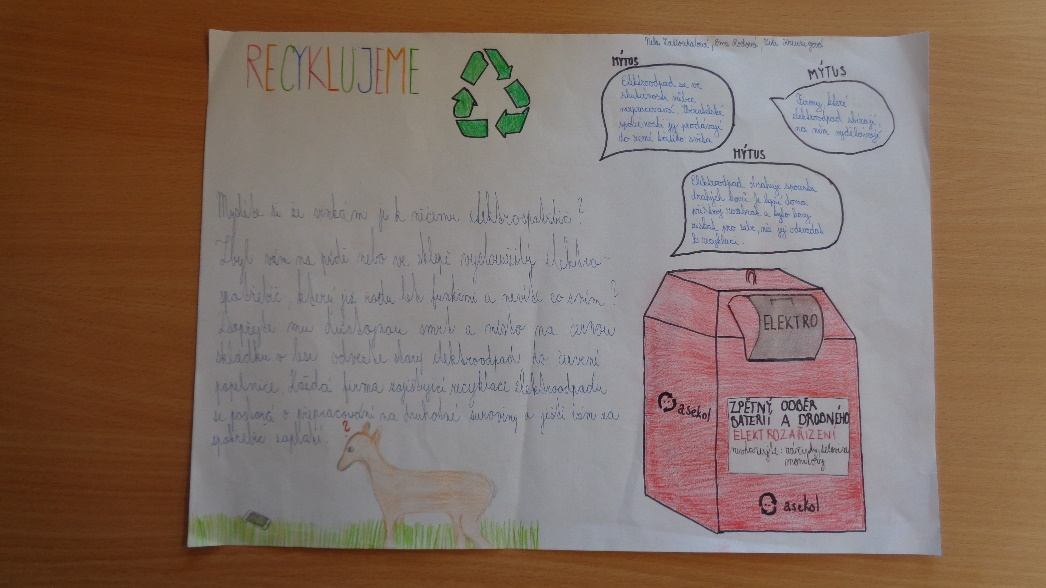 RECYKLUJEME
MÝTUS
Elektroodpad se ve
skutečnosti vůbec
nezpracovává.
společnosti jej prodávají
do zemí třetího světa.
MÝTUS
Firmy, které
elektroodpad sbírají,
na něm vydělávají
MÝTUS
Elektroodpad obsahuje spousta
drahých kovů. Je lepší doma
rozebrat a tyto kovy
získat pro sebe, než jej odevzdat
k recyklaci.
Myslíte si že je k ničemu elektrospotřebič?
Zbyl vám na půdě nebo ve sklepě vysloužilý elektro-
spotřebič, který již řadu let funkční a nevíte co s ním?
Dopřejte mu důstojnou smrt a místo na černou
skládku v lese odvezte starý elektroodpad do červené
popelnice. Každá firma zajišťující recyklaci elektroodpadu
se postará o zpracování na druhotné suroviny a ještě vám za
spotřebič zaplatí.
?
ELEKTRO
asekol
ZPĚTNÝ ODBĚR
BATERIÍ A DROBNÉHO
ELEKTROZAŘÍZENÍ
nevhazujte: zářivky, televize
monitory
asekol